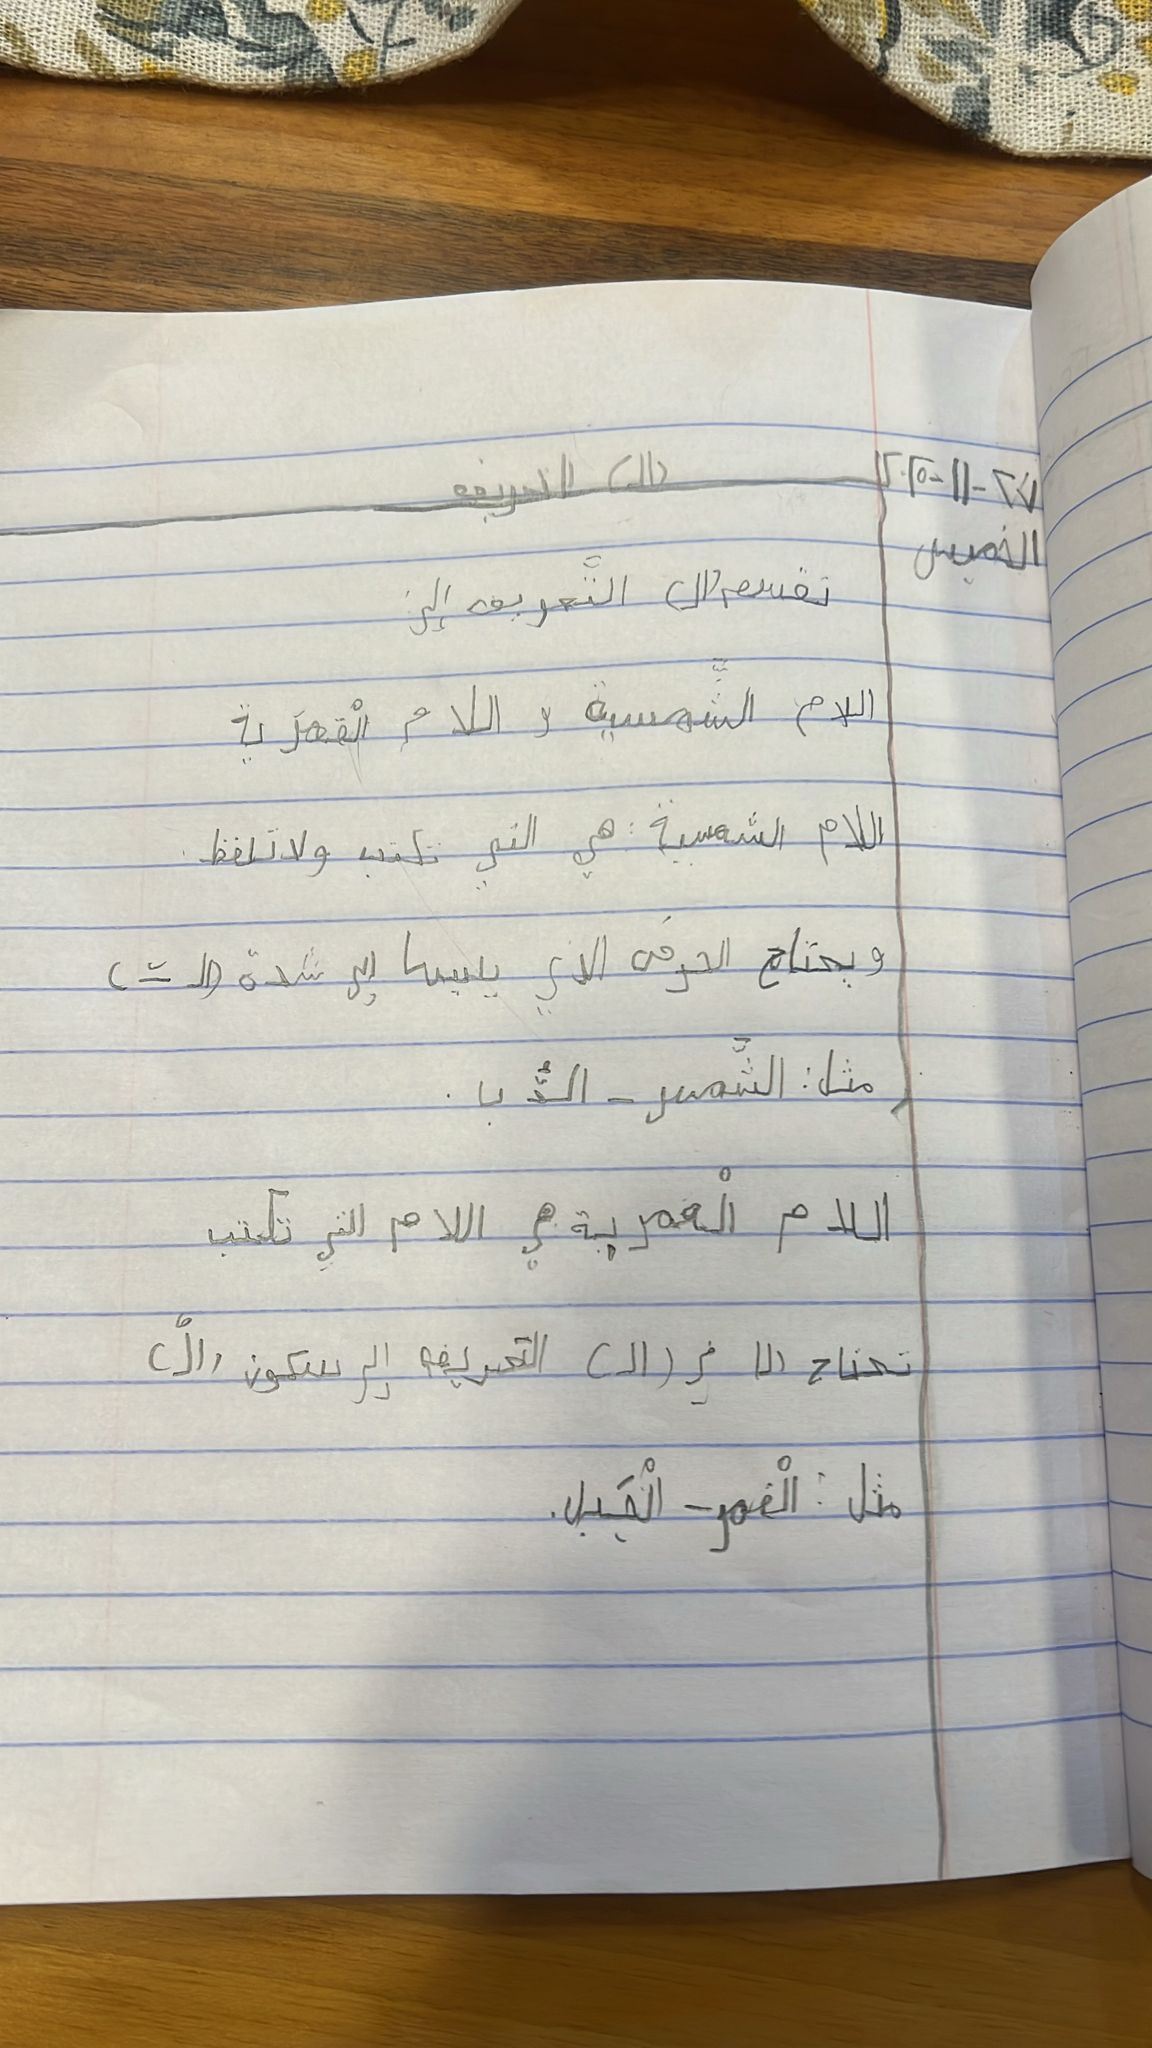 ٢٧-١١-٢٠٢٥
الخميس
(ال) التعريف
تقسم (ال) التَّعريف إلى:
اللام الشَّمسية و اللام الْقمَرية
اللام الشمسية: هي التي تكتب ولا تلفظ
ويحتاج الحرف الذي يليها إلى شدة (الـ ّـ)
مثل: الشَّمس - الدُّب.
اللام الْقمرية هي اللام التي تكتب
تحتاج في (ال) التعريف إلى سكون (الْ)
مثل: الْقمر - الْجَبل.